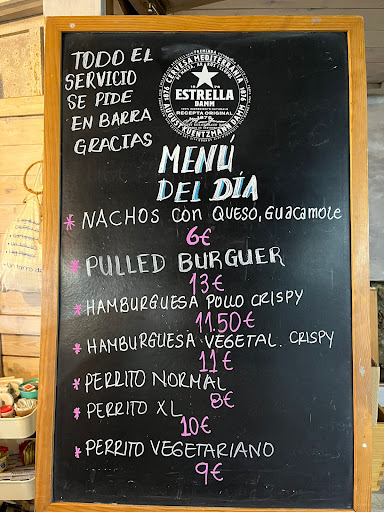 TODO EL
SERVICIO
SE PIDE
EN BARRA
GRACIAS
CERVEZA MEDITERRÁNEA
1876
ESTRELLA
DAMM
RECETA ORIGINAL
1876
AUGUST KUENTZMANN DAMM
MENÚ
DEL DÍA
* NACHOS CON QUESO, Guacamole
6€
* PULLED BURGUER
13€
* HAMBURGUESA POLLO CRISPY
11.50€
* HAMBURGUESA VEGETAL. CRISPY
11€
* PERRITO NORMAL
8€
* PERRITO XL
10€
* PERRITO VEGETARIANO
9€